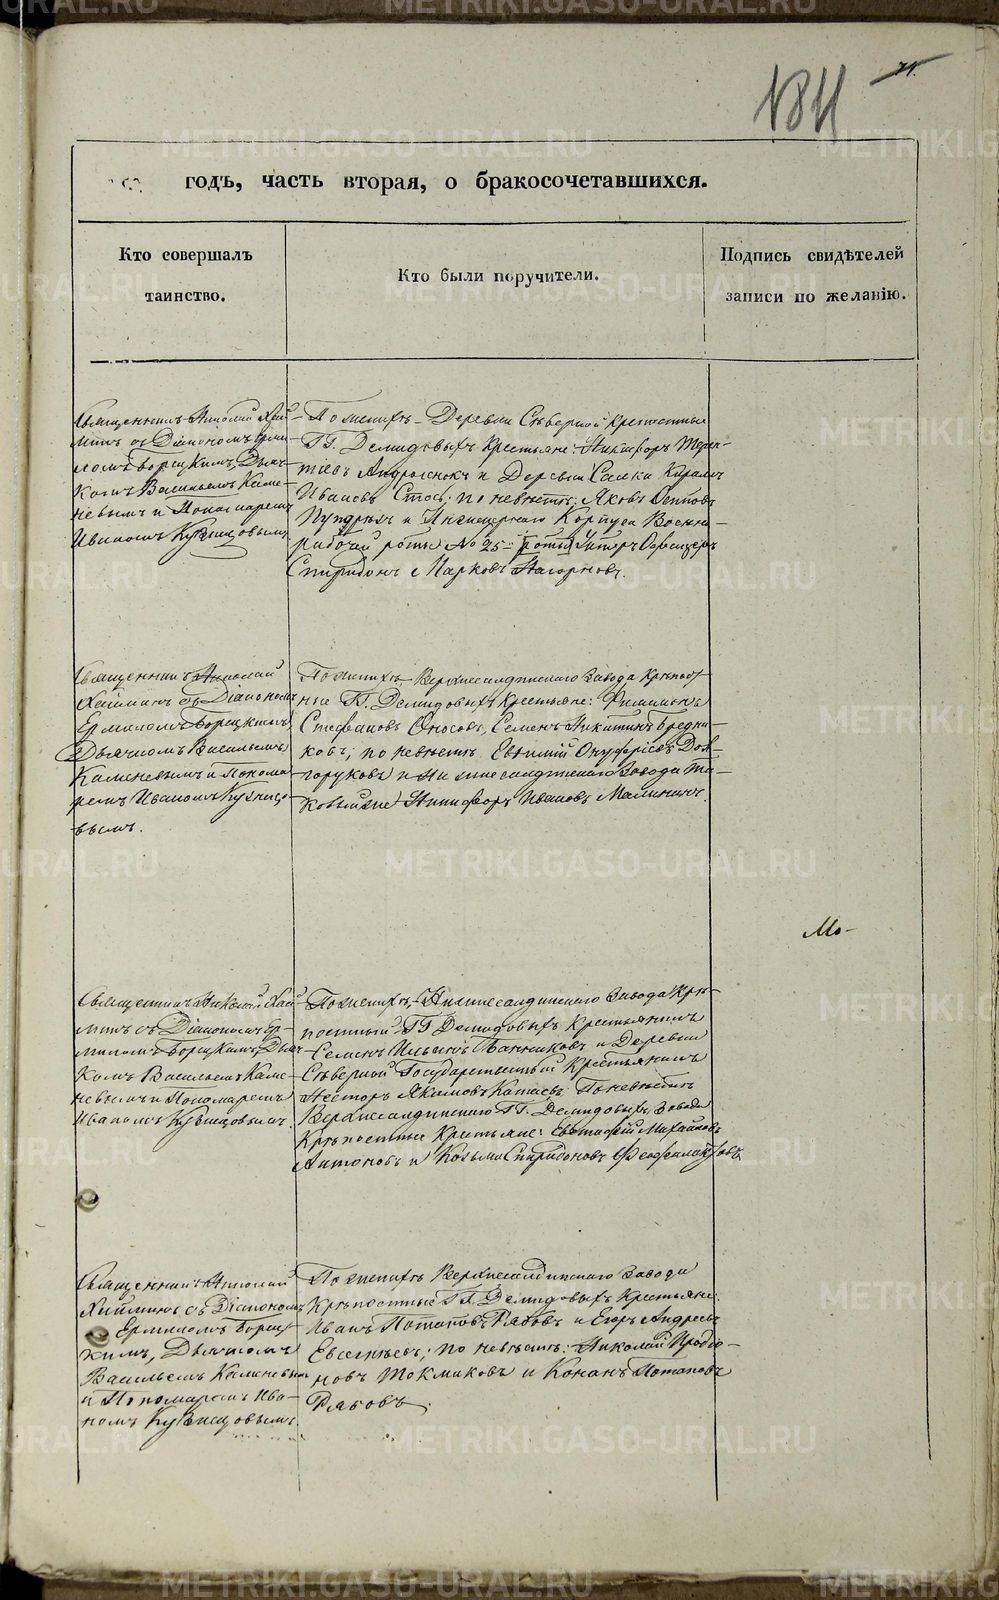 184
71.
годъ, часть вторая, о бракосочетавшихся.
Кто совершалъ
таинство.
Кто были поручители.
Подпись свидѣтелей
записи по желанію.
Священникъ Николай Хай-
минъ съ Діакономъ Ерми-
ломъ Борецкимъ, Дьяч-
комъ Васильемъ Каме-
невымъ и Пономаремъ
Иваномъ Кузнецовымъ
По женихѣ Деревни Сѣверной Крепостные
ГГ. Демидовыхъ крестьяне: Никифоръ Терен-
тіевъ и Деревни Салки Кирилъ
Ивановъ по невѣстѣ: Яковъ
и Инженернаго Корпуса Военно-
рабочей роты № 25 роты Унтеръ Офицеръ
Спиридонъ Марковъ Нагорновъ.
Священникъ Николай
Хайминъ съ Діакономъ
Ермиломъ Борецкимъ,
Дьячкомъ Васильемъ
Каменевымъ и Понома-
ремъ Иваномъ Кузнецо-
вымъ.
По женихѣ Верхнесалдинскаго Завода Крѣпост-
ные ГГ. Демидовыхъ крестьяне: Филимонъ
Стефановъ Оносовъ, Семенъ Никитинъ
ковъ; по невѣстѣ Евфимій Онуфріевъ Дол-
горуковъ и Нижнесалдинскаго Завода Та-
ковый же Никифоръ Ивановъ Малининъ.
Мо-
Священникъ Николай Хай-
минъ съ Діакономъ Ер-
миломъ Борецкимъ, Дьяч-
комъ Васильемъ Каме-
невымъ и Пономаремъ
Иваномъ Кузнецовымъ.
По женихѣ, Нижнесалдинскаго Завода Крѣ-
постный ГГ Демидовыхъ Крестьянинъ
Семенъ Ильинъ Банниковъ и Деревни
Сѣверной Государственный Крестьянинъ
Несторъ Якимовъ Катаевъ По невѣстѣ
Верхнесалдинскаго ГГ. Демидовыхъ завода
Крѣпостные Крестьяне: Михайловъ
Антоновъ и Козьма Спиридоновъ Феофилактовъ
Священникъ Николай
Хайминъ съ Діакономъ
Ермиломъ Борец-
кимъ, Дьячкомъ
Васильемъ Каменевымъ
и Пономаремъ Ива-
номъ Кузнецовымъ.
По женихѣ Верхнесалдинскаго Завода
Крѣпостные ГГ. Демидовыхъ Крестьяне:
Иванъ Потаповъ Рябовъ и Егоръ Андреевъ
Евсегнѣевъ; по невѣстѣ: Николай Продіо-
новъ Токмиковъ и Кононъ Потаповъ
Рябовъ.
METRIKI.GASO-URAL.RU